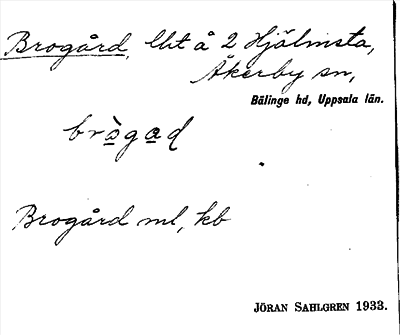 Brogård, lht å 2 Hjälmsta,
Åkerby sn,
Bälinge hd, Uppsala län.
brò̱ga̱d
Brogård ml, kb
JÖRAN SAHLGREN 1933.